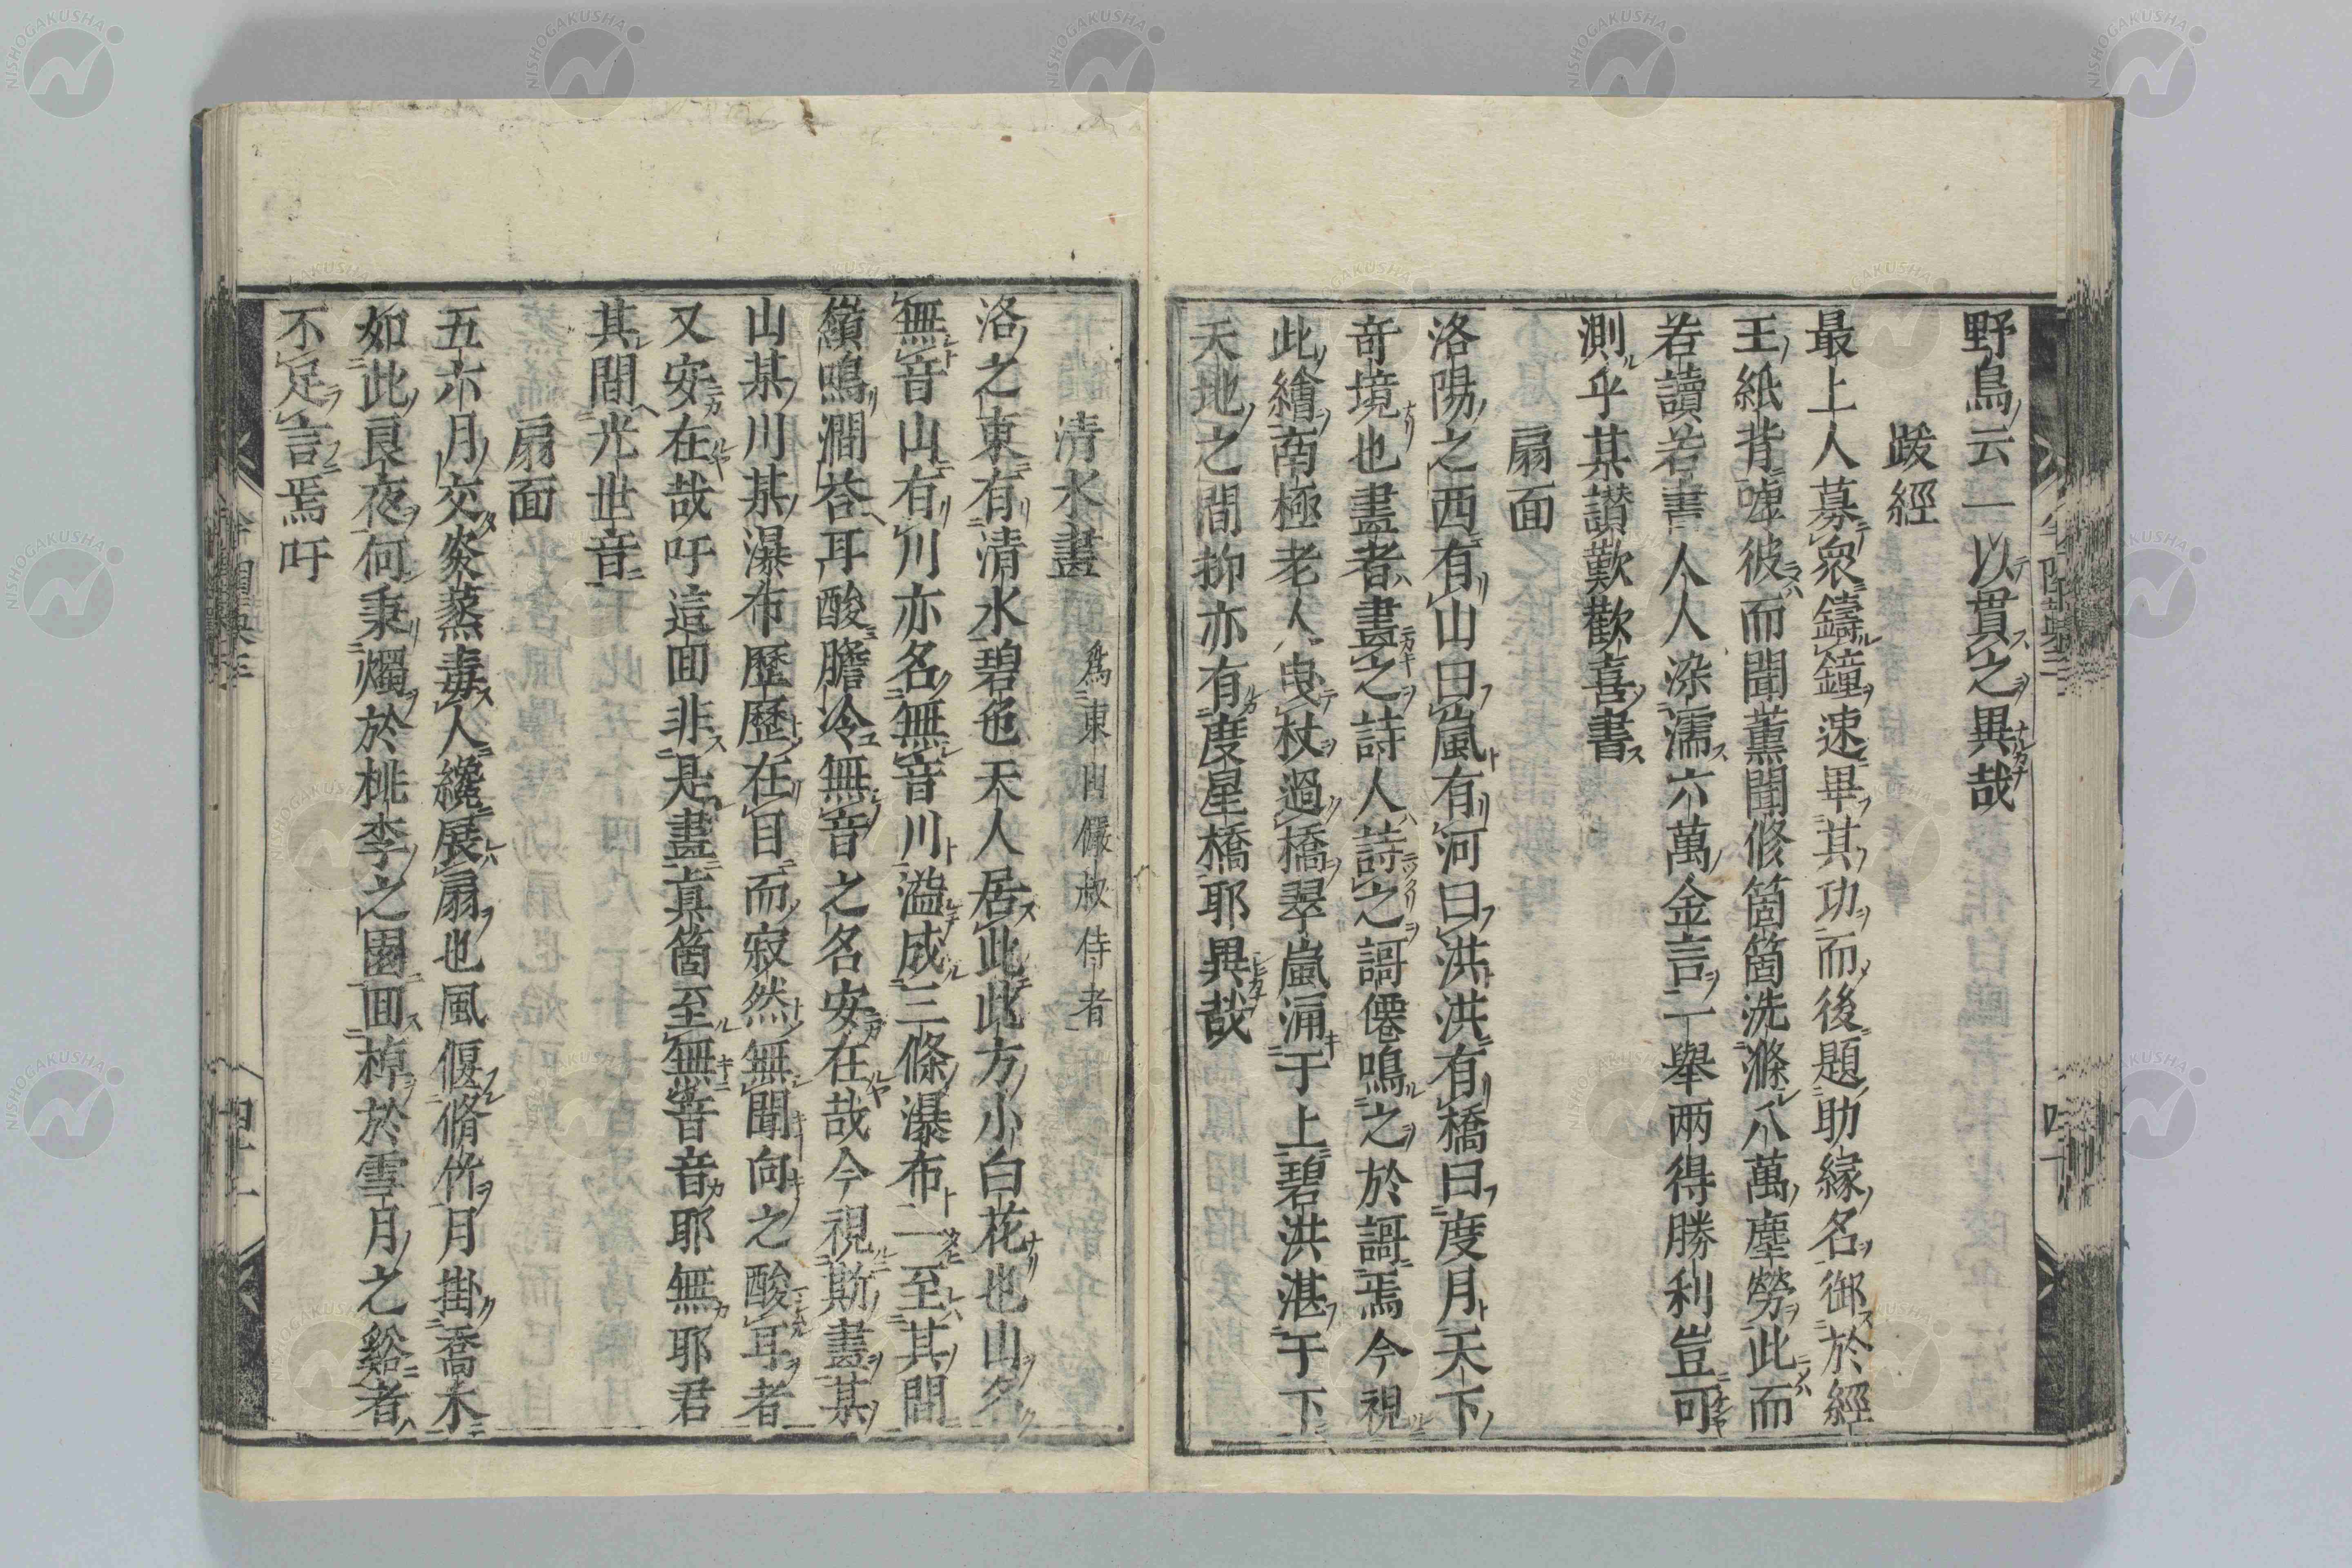 野鳥云一以貫之異哉
跋經
最上人募衆鑄鐘速畢其功而後題助緣名御於經
王紙背嘘彼而聞薫聞修箇箇洗滌八萬塵勞此而
若讀若書人人染濡六萬金言一舉兩得勝利豈可
測乎某讃歎歡喜書
扇面
洛陽之西有山曰嵐有河曰洪洪有橋曰度月天下
奇境也畫者畫之詩人詩之謌僊鳴之於謌焉今視
此繪南極老人曳杖過橋翠嵐涌于上碧洪湛于下
天地之間抑亦有度星橋耶異哉
清水畫 為東山儼叔侍者
洛之東有清水碧色天人居此此方小白花也山名
無音山有川亦名無音川溢成三條瀑布二至其間
嶺鳴澗荅耳酸膽冷無音之名安在哉今視斯畫某
山某川某瀑布歷歷在目而寂然無聞向之酸耳者
又安在哉吁這面非是畫真箇至無音音耶無耶君
其間光世音
扇面
五六月交炎蒸毒人纔展扇也風偃脩竹月掛喬木
如此良夜何秉燭於桃李之園面棹於雪月之谿者
不足言焉吁
四十一
NISHOGAKUSHA